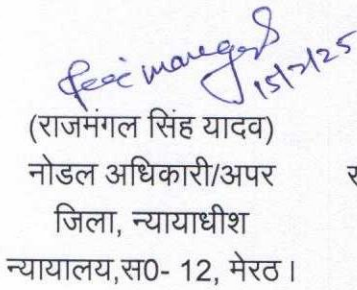 15/2/25
(राजमंगल सिंह यादव)
नोडल अधिकारी/अपर
जिला, न्यायाधीश
न्यायालय,स0- 12, मेरठ ।